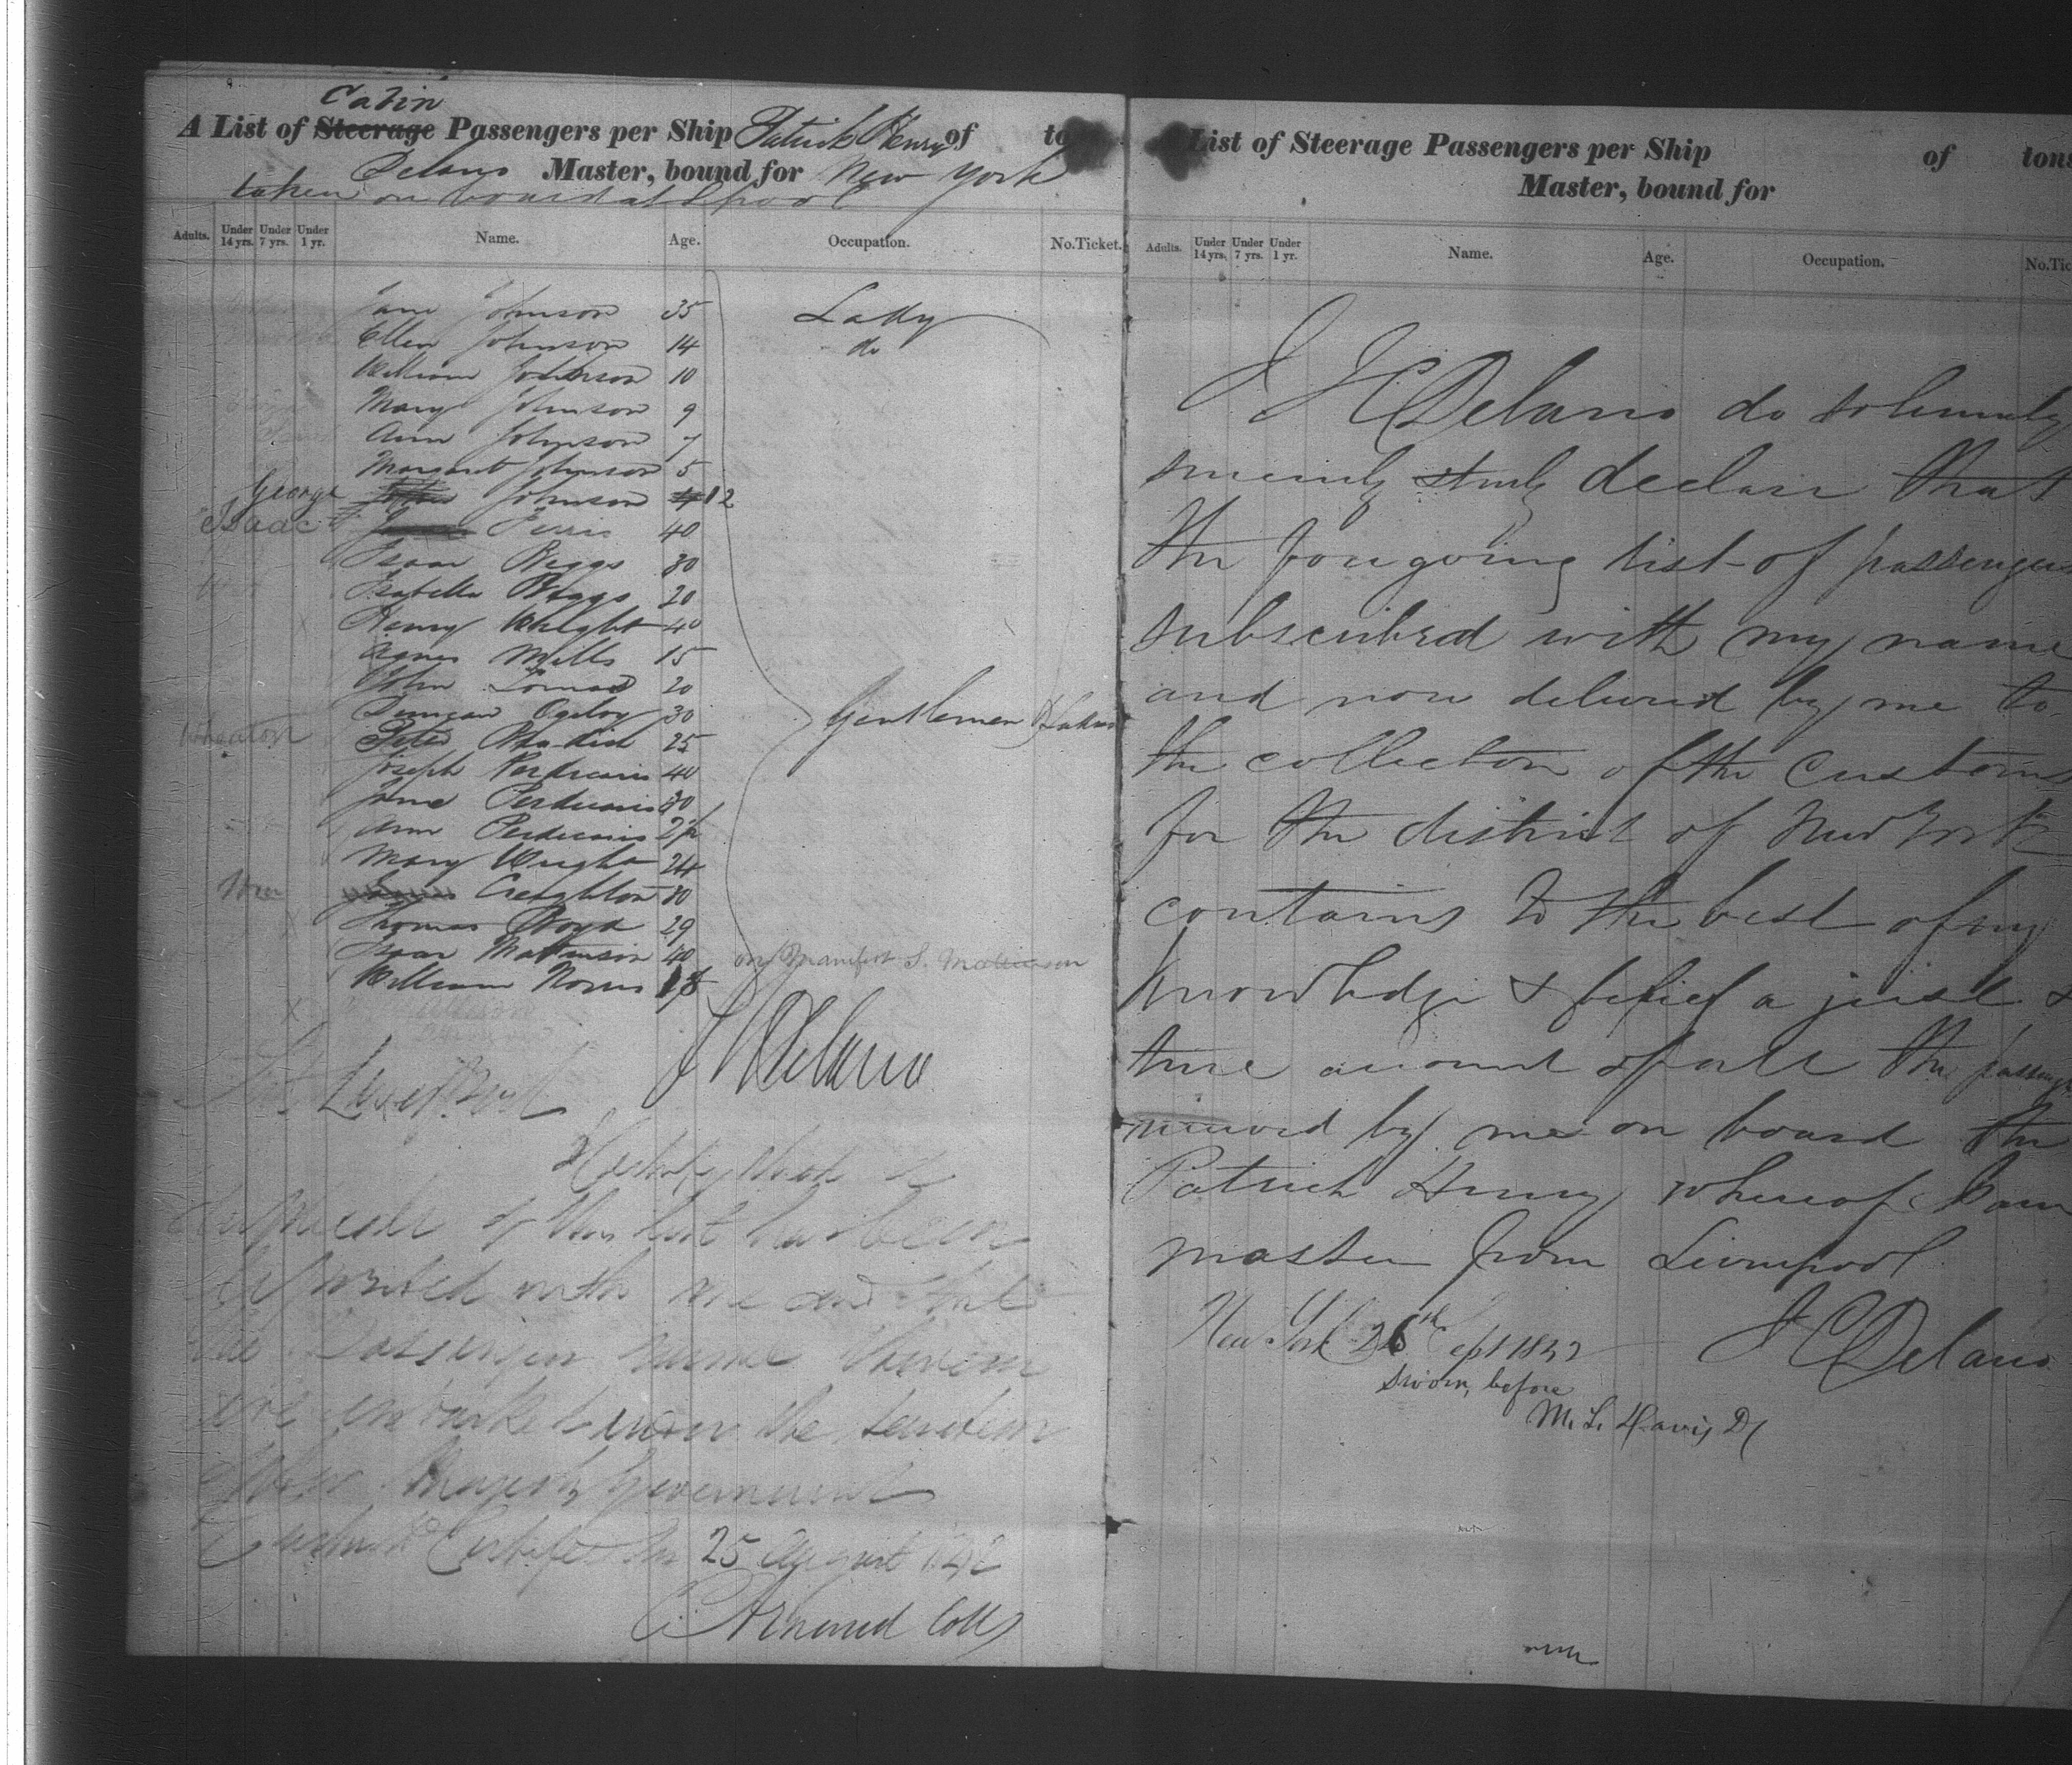 Cabin
A List of Steerage Passengers per Ship Patrick Henry of to
Delano Master, bound for New York
taken on board at Lpool
Adults. Under 14 yrs. Under 7 yrs. Under 1 yr. Name. Age. Occupation. No. Ticket.
Jane Johnson 35 Lady
Ellen Johnson 14 do
William Johnson 10
Mary Johnson 9
Ann Johnson 7
Margaret Johnson 5
George Johnson 12
Isaac Ferris 40
Isaac Biggs 30
Isabella Biggs 20
Henry Wright 40
Agnes Mills 15
John Lomas 20
Duncan Ogilvy 30
Peter 25
Gentlemen & Ladies
Joseph Perdicaris 40
Jane Perdicaris 30
Ann Perdicaris 2½
Mary Wright 24
Wm Creighton 30
Thomas Boyd 29
Isaac Mattinson 40 on Manifest S. Mattinson
William Norris 18
J C Delano
Liverpool
I certify that a
duplicate of this list has been
deposited with me and that
the Passengers named therein
are embarked under the sanction
of Her Majesty's Government
25 August 1842
List of Steerage Passengers per Ship of tons
Master, bound for
Adults. Under 14 yrs. Under 7 yrs. Under 1 yr. Name. Age. Occupation. No. Tic
I J C Delano do solemnly
sincerely & truly declare that
the foregoing list of passengers
subscribed with my name
and now delivered by me to
the collector of the Customs
for the district of New York
contains to the best of my
knowledge & belief a just &
true account of all the passengers
received by me on board the
Patrick Henry whereof I am
master from Liverpool
New York 26th Sept 1842 J C Delano
Sworn, before
M. L. Davis D C